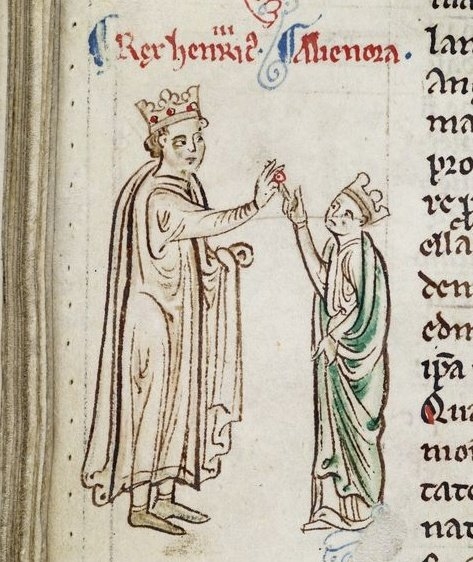 Rex henric' iii. Alienora.
lan
An
ma
pro
re p
ella
den
edn
ip̄a
Qua
mon
tate
nat